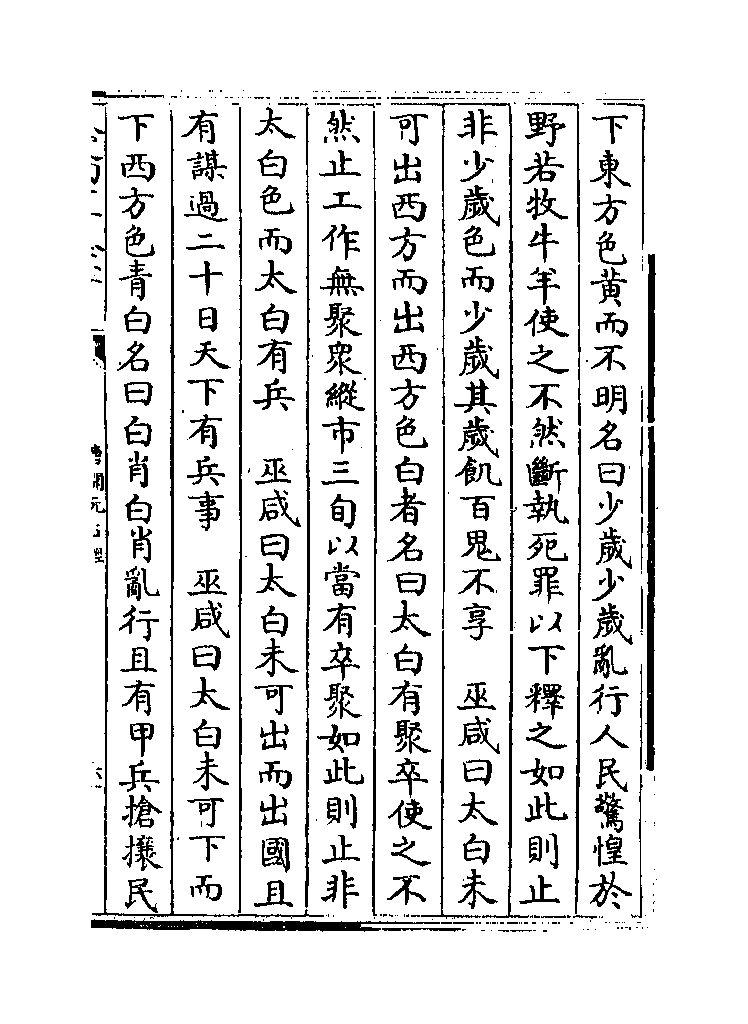 下東方色黄而不明名曰少歲少歲亂行人民驚惶於
野若牧牛羊使之不然斷執死罪以下釋之如此則止
非少歲色而少歲其歲飢百鬼不享　巫咸曰太白未
可出西方而出西方色白者名曰太白有聚卒使之不
然止工作無聚衆縱市三旬以當有卒聚如此則止非
太白色而太白有兵　巫咸曰太白未可出而出國且
有謀過二十日天下有兵事　巫咸曰太白未可下而
下西方色青白名曰白肖白肖亂行且有甲兵搶攘民
唐開元占經